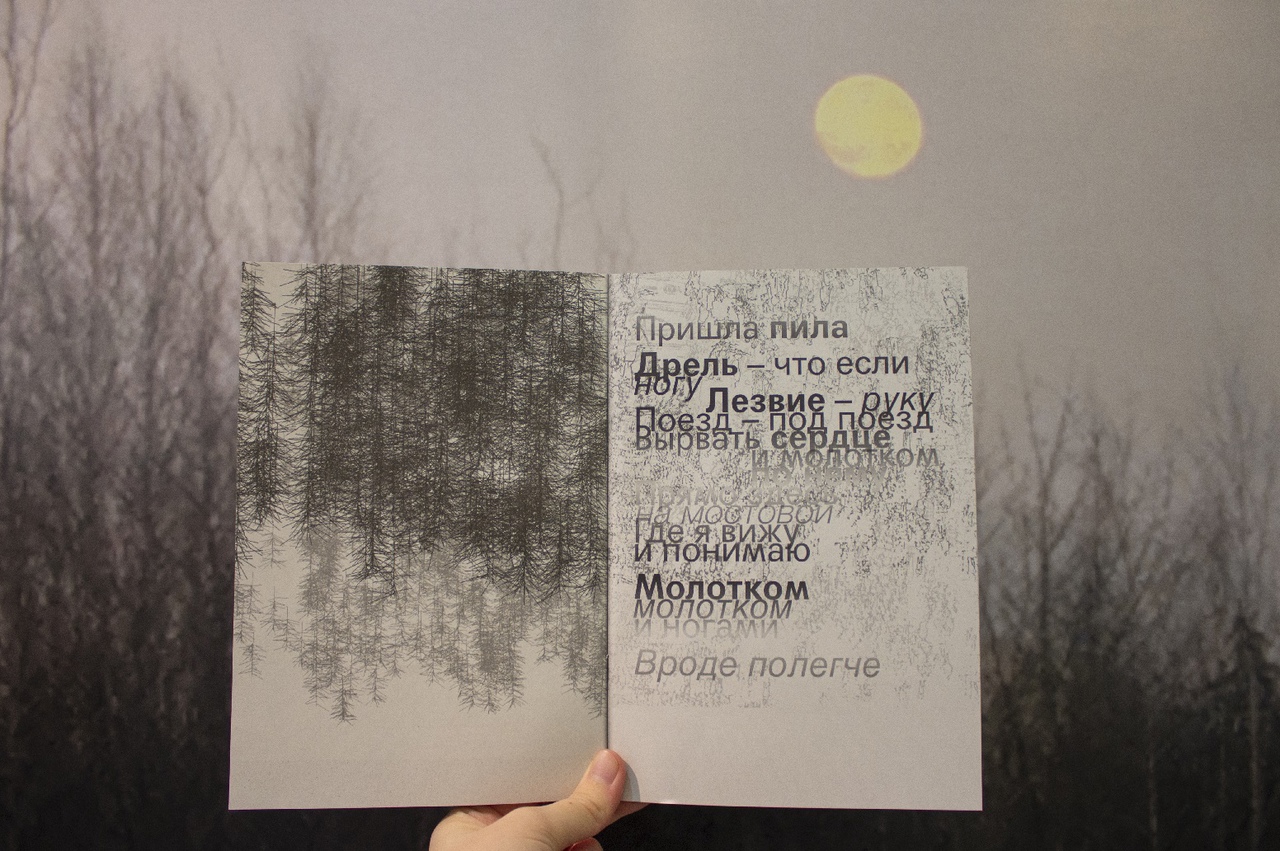 Пришла пила
Дрель – что если
ногу
Лезвие – руку
Поезд – под поезд
Вырвать сердце
и молотком
Прямо здесь
на мостовой
Где я вижу
и понимаю
Молотком
молотком
и ногами
Вроде полегче